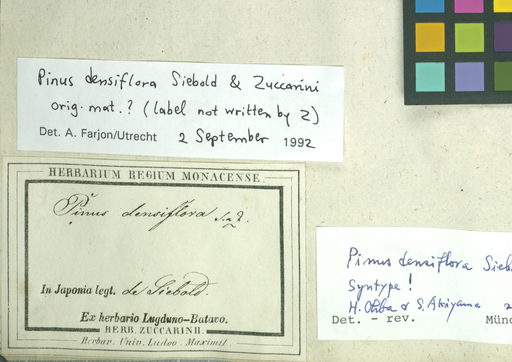 Pinus densiflora Siebold & Zuccarini
orig. mat.? (label not written by Z)
Det. A. Farjon/Utrecht 2 September 1992
HERBARIUM REGIUM MONACENSE
Pinus densiflora S. & Z.
In Japonia legt. de Siebold.
Ex herbario Lugduno-Batavo.
HERB. ZUCCARINII.
Herbar. Univ. Ludov. Maximil.
Pinus densiflora Sieb
Syntype!
H. Ohba & S. Akiyama 2
Det. - rev. Münc